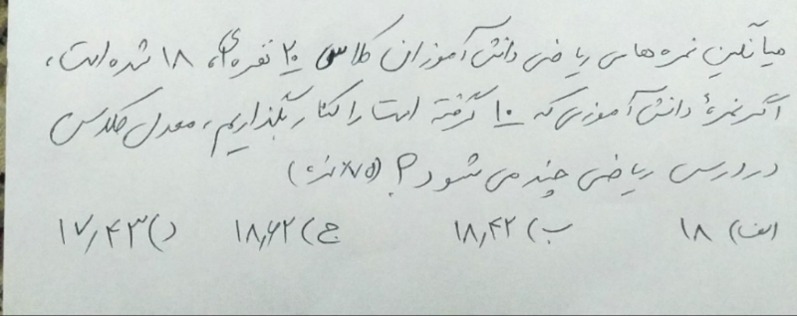 میانگین نمره‌های ریاضی دانش آموزان کلاس ۲۰ نفره‌ای، ۱۸ شده است،
اگر نمرهٔ دانش آموزی که ۱۰ گرفته است را کنار بگذاریم، معدل کلاس
در درس ریاضی چند می شود؟ (۰/۷۵ نمره)
الف) ۱۸ ب) ۱۸,۴۲ ج) ۱۸,۶۲ د) ۱۷,۴۳